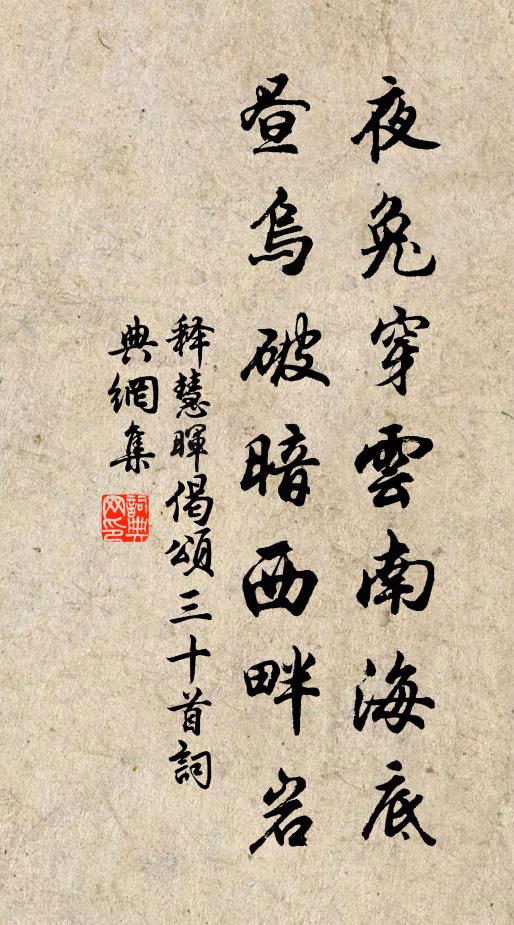 夜兔穿雲南海底
晝烏破暗西畔岩
释慧暉偈頌三十首詞
典網集
詞典网印